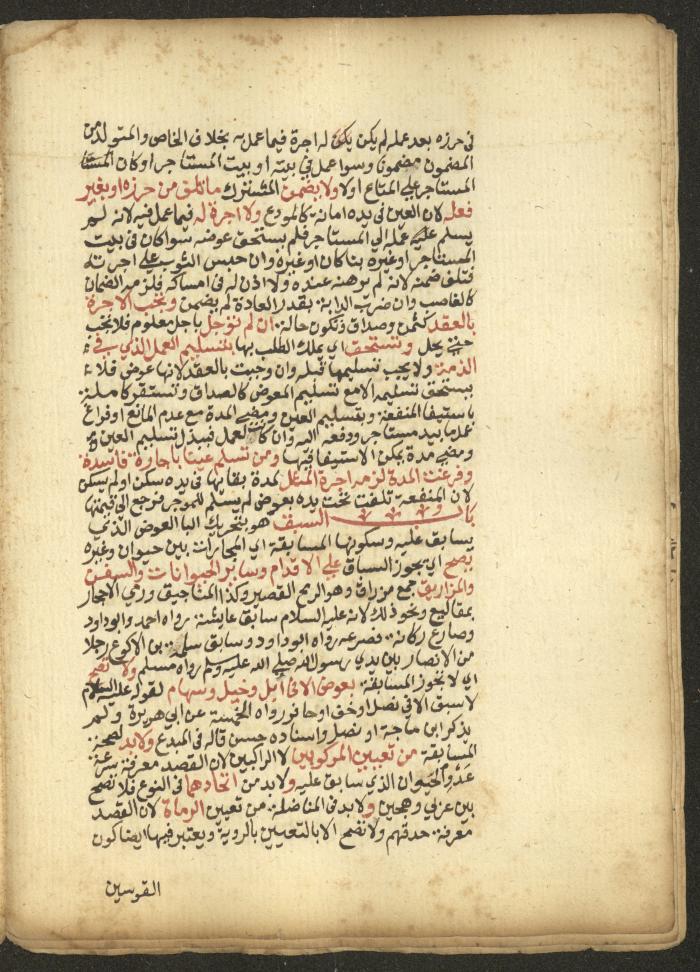 في حرزه بعد عمله لم يكن يكن له اجرة فيما عمل به بخلاف الخاص والمتولد من
المضمون مضمونا وسوا عمل في بيته او بيت المستاجر او كان المستا
المستاجر علي المتاع اولا ولا يضمن المشترك ما تلف من حرزه او بغير
فعله لان العين في يده امانة كالمودع ولا اجرة له فيما عمل فيه لانه لم
يسلم عمله الي المستاجر فلم يستحق عوضه سوا كان في بيت
المستاجر او غيره بنا كان او غيره وان حبس الثوب علي اجرته
فتلف ضمنه لانه لم يرهنه عنده ولا اذن له في امساكه فلزمه الضمان
كالغاصب وان ضرب الدابة بقدر العادة لم يضمن وتجب الاجرة
بالعقد كثمن وصداق وتكون حالة ان لم تؤجل باجل معلوم فلا تجب
حتي يحل وتستحق اي يملك الطلب بها بتسليم العمل الذي في
الذمة ولا يجب تسليمها قبله وان وجبت بالعقد لانها عوض فلا
يستحق تسليمه الا مع تسليم المعوض كالصداق وتستقر كاملة
باستيفا المنفعة وبتسليم العين ومضي المدة مع عدم المانع او فراغ
عمل ما بيد مستاجر ودفعه اليه وان كانت لعمل فببذل تسليم العين
ومضي مدة يمكن الاستيفا فيها ومن تسلم عينا باجارة فاسدة
وفرغت المدة لزمه اجرة المثل لمدة بقايها في يده سكن او لم يسكن
لان المنفعة تلفت تحت يده بعوض لم يسلم للموجر فرجع الي قيمتها
باب السبق هو بتحريك البا العوض الذي
يسابق عليه وسكونها المسابقة اي المجارات بين حيوان وغيره
يصح اي يجوز السباق علي الاقدام وساير الحيوانات والسفن
والمزاريق جمع مزراق وهو الرمح القصير وكذا المناجيق ورمي الاحجار
بمقاليع ونحو ذلك لانه عليه السلام سابق عايشة رواه احمد وابو داود
وصارع ركانة فصرعه رواه ابو داود وسابق سلمة بن الاكوع رجلا
من الانصار بين يدي رسول الله صلي الله عليه وسلم رواه مسلم ولا تصح
اي لا تجوز المسابقة بعوض الا في ابل وخيل وسهام لقوله عليه السلام
لا سبق الا في نصل او خف او حافر رواه الخمسة عن ابي هريرة ولم
يذكر ابن ماجة او نصل واسناده حسن قاله في المبدع ولا بد لصحة
المسابقة من تعيين المركوبين لا الراكبين لان القصد معرفة سرعة
عدو الحيوان الذي سابق عليه ولا بد من اتحادهما في النوع فلا تصح
بين عربي وهجين ولا بد في المناضلة من تعيين الرماة لان القصد
معرفة حذقهم ولا تصح الا بالتعيين بالروية ويعتبر فيها ايضا كون
القوسين